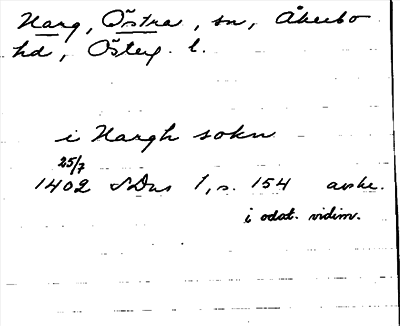 Harg, Östra, sn, Åkerbo
hd, Österg. l.
i Hargh sokn
25/7
1402 SDns 1, s. 154 avskr.
i odat. vidim.